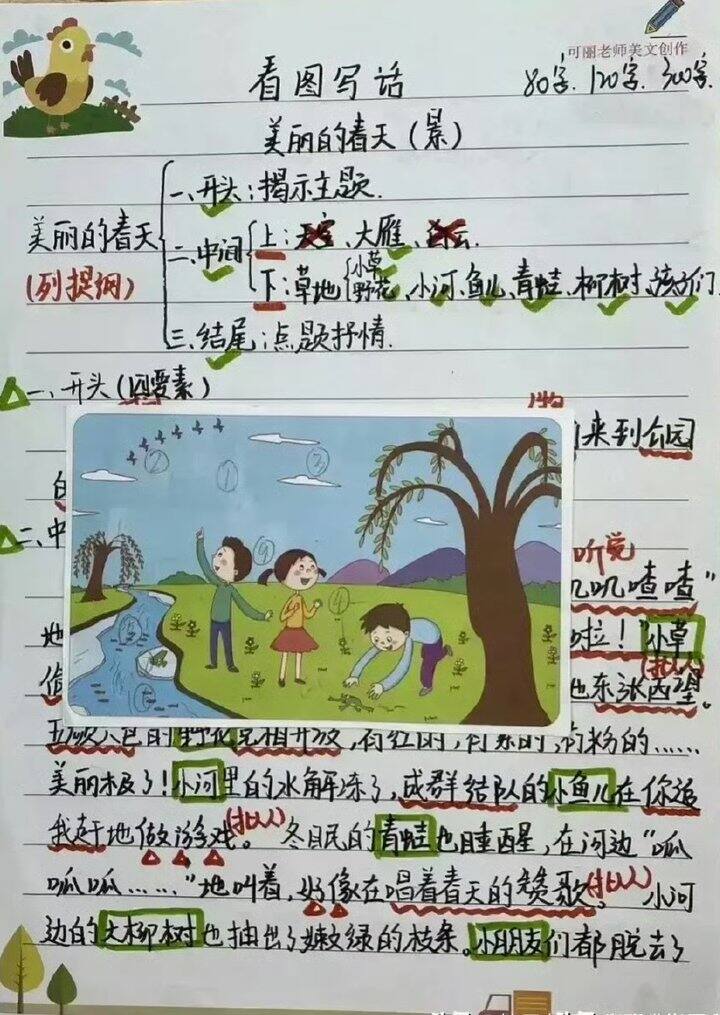 可丽老师美文创作
看图写话 80字.120字.300字.
美丽的春天(景)
一、开头:揭示主题.
美丽的春天
(列提纲)
二、中间
上:天空、大雁、白云.
下:草地 小草 野花、小河、鱼儿、青蛙、柳树、孩子们
三、结尾:点题抒情.
一、开头(四要素)
来到公园
二、中
听觉
叽叽喳喳”
地 啦!”小草
(拟人)
偷 也东张西望。
五颜六色的野花竞相开放,有红的,有紫的,有粉的……
美丽极了!小河里的水解冻了,成群结队的小鱼儿在你追
我赶地做游戏。(拟人)冬眠的青蛙也睡醒,在河边“呱
呱呱……”地叫着,好像在唱着春天的赞歌(拟人)。小河
边的大柳树也抽出了嫩绿的枝条。小朋友们都脱去了
①
②
③
④
⑤
⑥
⑦
⑨